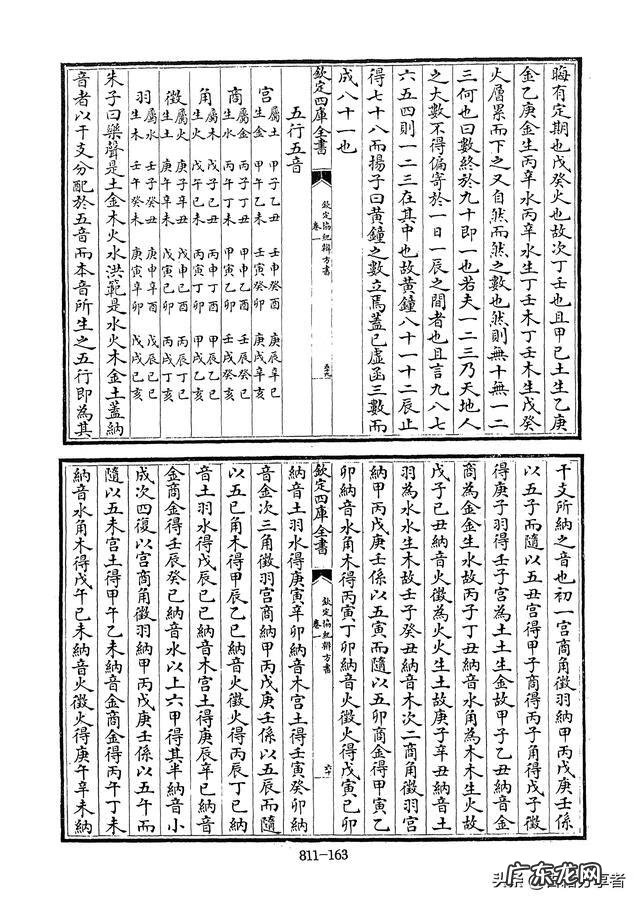 晦有定期也戊癸火也故次丁壬也且甲己土生乙庚
金乙庚金生丙辛水丙辛水生丁壬木丁壬木生戊癸
火層累而下之又自然而然之數也然則無十無一二
三何也曰數終於九十即一也若夫一二三乃天地人
之大數不得偏寄於一日一辰之間者也且言九八七
六五四則一二三在其中也故黃鐘八十一十二辰止
得七十八而揚子曰黃鐘之數立焉蓋已虛函三數而
成八十一也
欽定四庫全書
欽定協紀辨方書
卷一
五九
五行五音
宮 屬土 甲子乙丑 壬申癸酉 庚辰辛巳
生金 甲午乙未 壬寅癸卯 庚戌辛亥
商 屬金 丙子丁丑 甲申乙酉 壬辰癸巳
生水 丙午丁未 甲寅乙卯 壬戌癸亥
角 屬木 戊子己丑 丙申丁酉 甲辰乙巳
生火 戊午己未 丙寅丁卯 甲戌乙亥
徵 屬火 庚子辛丑 戊申己酉 丙辰丁巳
生土 庚午辛未 戊寅己卯 丙戌丁亥
羽 屬水 壬子癸丑 庚申辛酉 戊辰己巳
生木 壬午癸未 庚寅辛卯 戊戌己亥
朱子曰樂聲是土金木火水洪範是水火木金土蓋納
音者以干支分配於五音而本音所生之五行即為其
干支所納之音也初一宮商角徵羽納甲丙戊庚壬係
以五子而隨以五丑宮得甲子商得丙子角得戊子徵
得庚子羽得壬子宮為土土生金故甲子乙丑納音金
商為金金生水故丙子丁丑納音水角為木木生火故
戊子己丑納音火徵為火火生土故庚子辛丑納音土
羽為水水生木故壬子癸丑納音木次二商角徵羽宮
納甲丙戊庚壬係以五寅而隨以五卯商金得甲寅乙
卯納音水角木得丙寅丁卯納音火徵火得戊寅己卯
欽定四庫全書
欽定協紀辨方書
卷一
六十
納音土羽水得庚寅辛卯納音木宮土得壬寅癸卯納
音金次三角徵羽宮商納甲丙戊庚壬係以五辰而隨
以五巳角木得甲辰乙巳納音火徵火得丙辰丁巳納
音土羽水得戊辰己巳納音木宮土得庚辰辛巳納音
金商金得壬辰癸巳納音水以上六甲得其半納音小
成次四復以宮商角徵羽納甲丙戊庚壬係以五午而
隨以五未宮土得甲午乙未納音金商金得丙午丁未
納音水角木得戊午己未納音火徵火得庚午辛未納
811-163
广东龙网